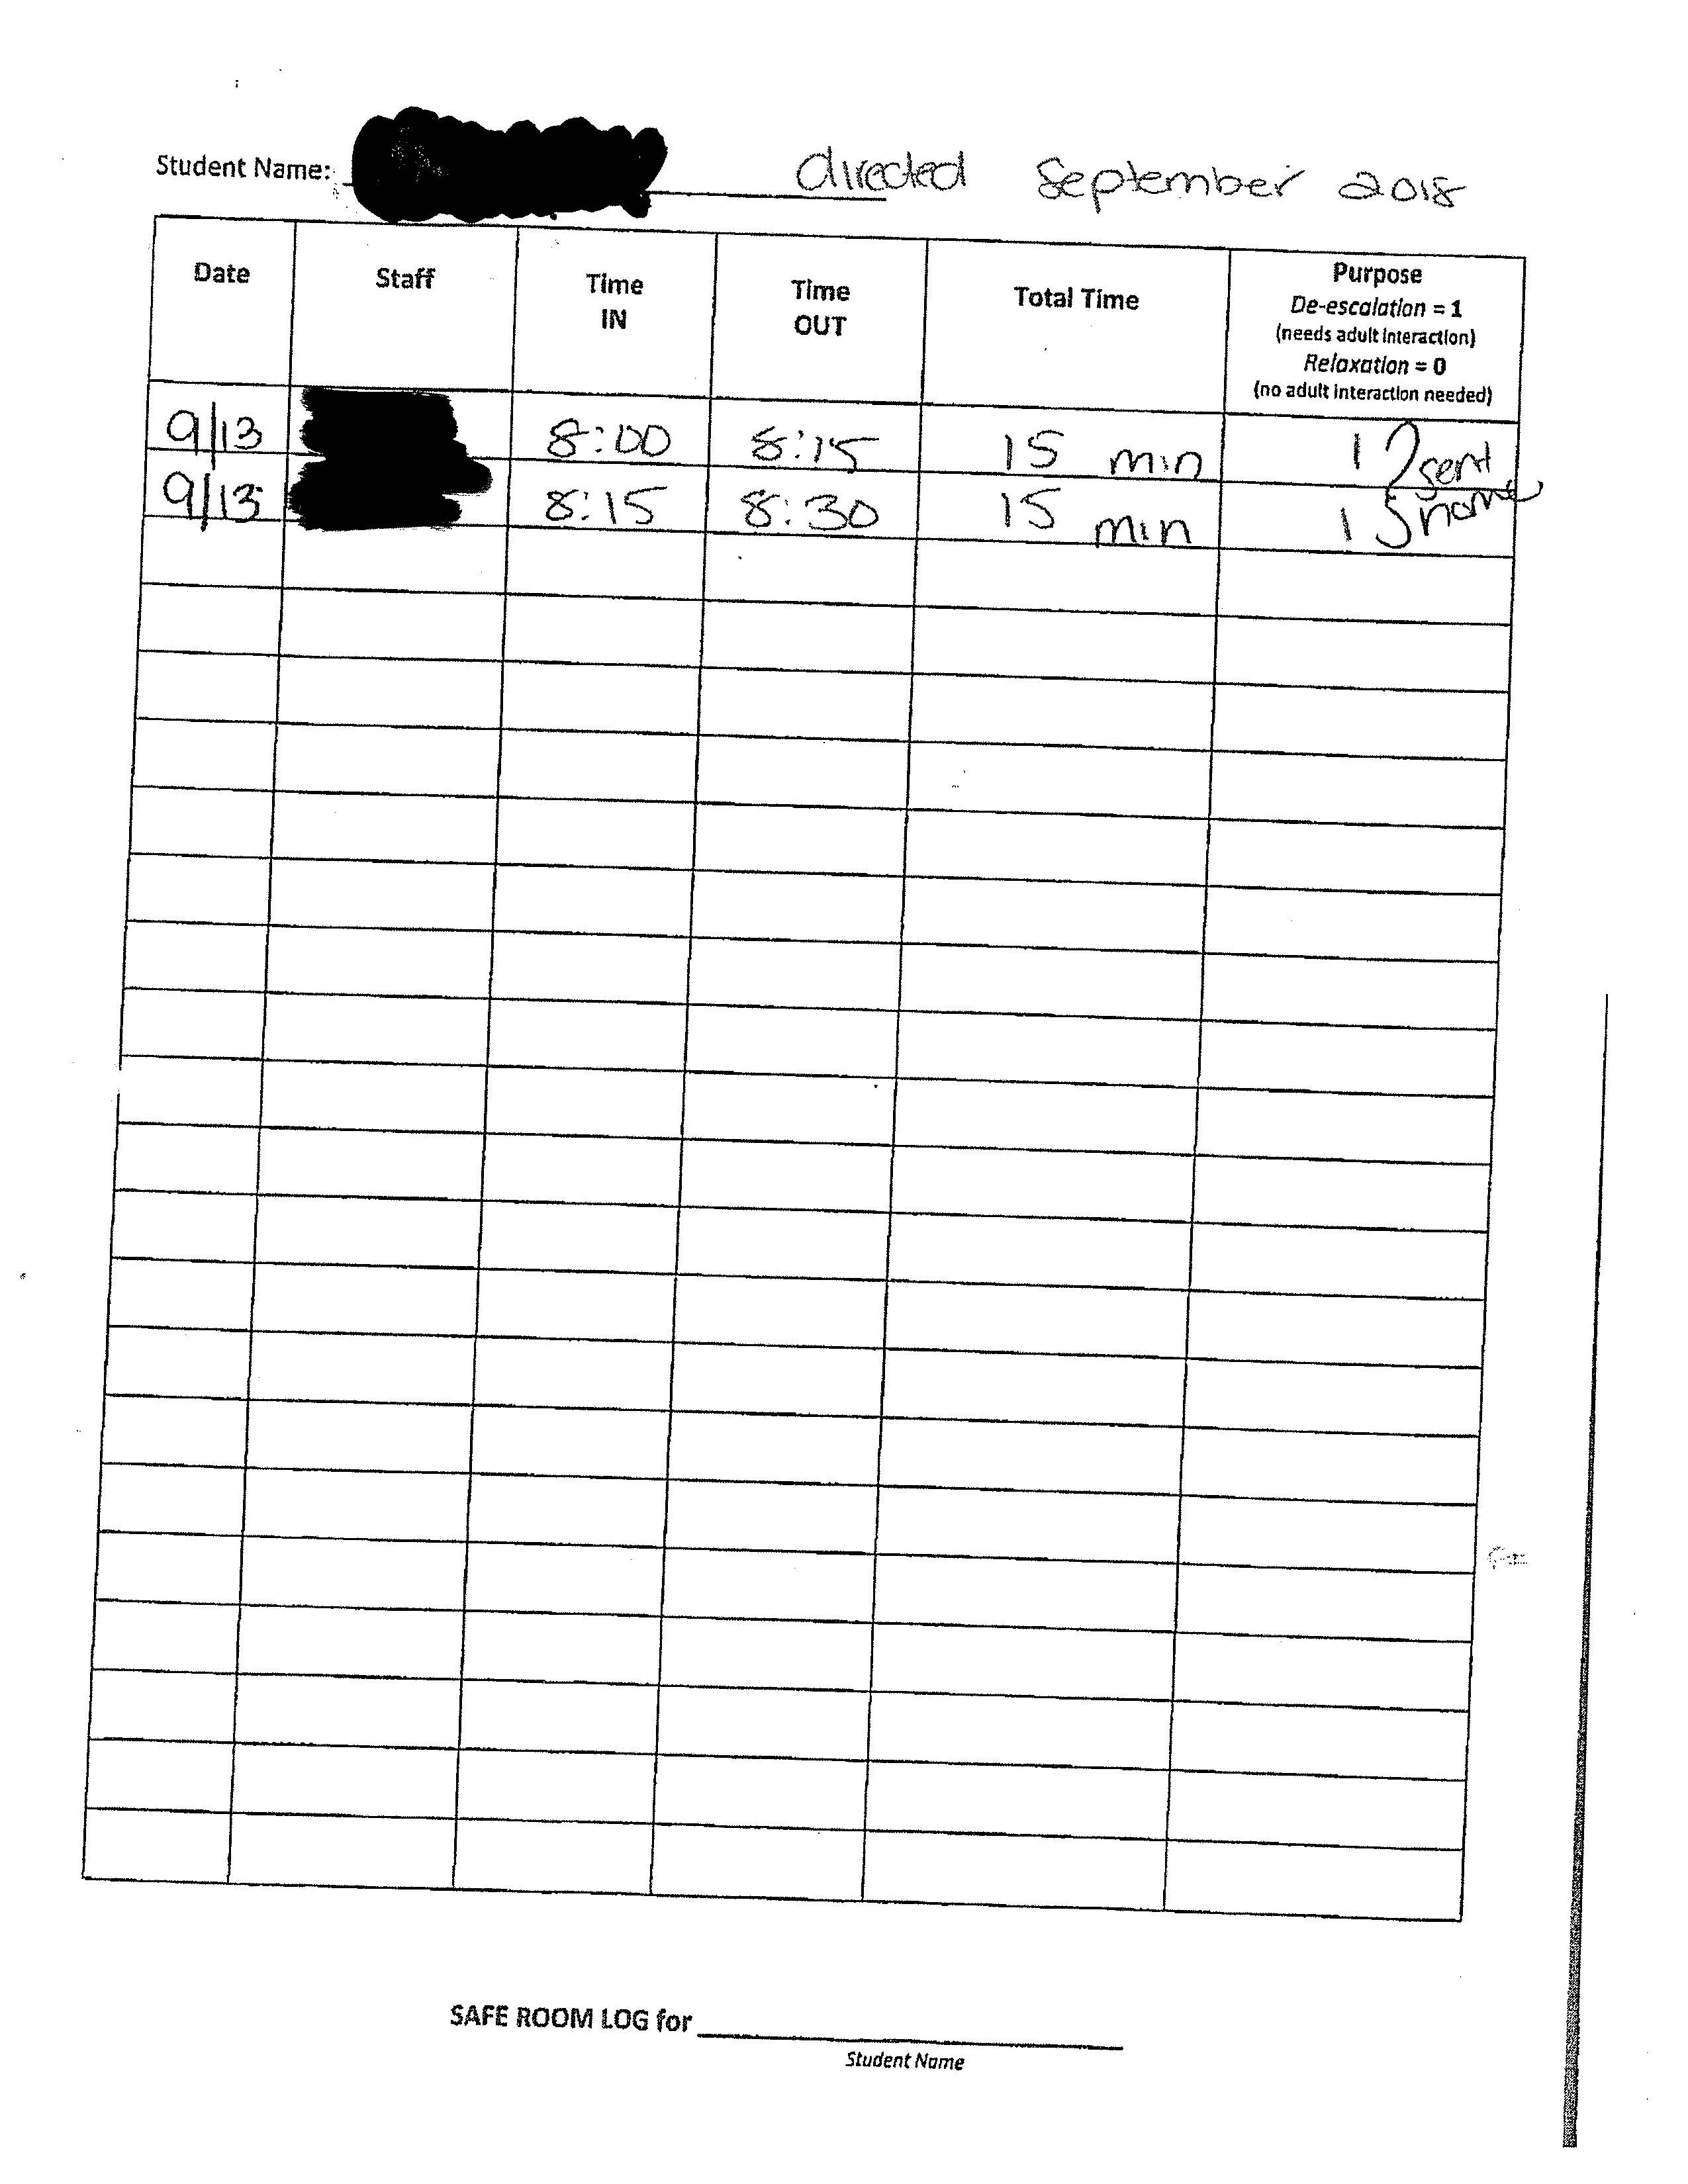 Student Name: directed September 2018
Date Staff Time IN Time OUT Total Time Purpose
De-escalation = 1
(needs adult interaction)
Relaxation = 0
(no adult interaction needed)
9/13 8:00 8:15 15 min 1 sent
9/13 8:15 8:30 15 min 1 home
SAFE ROOM LOG for
Student Name